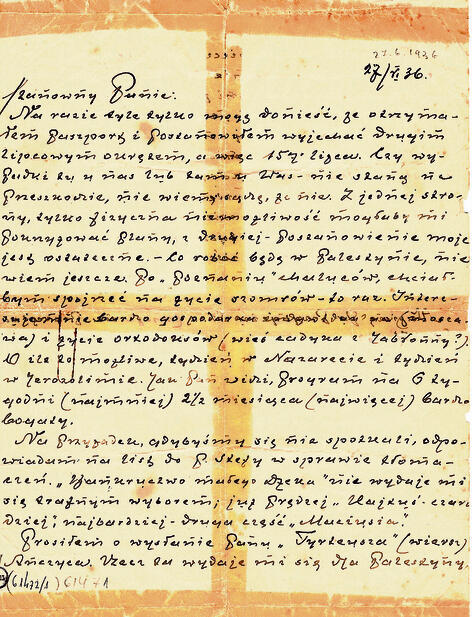 27.6.1936
27/VI 36.
Szanowny Panie.
Na razie tyle tylko mogę donieść, że otrzyma-
łem paszport i postanowiłem wyjechać drugim
lipcowym okrętem, a więc 15% lipca. Czy wy-
padki tu u nas lub tam u Was - nie staną na
przeszkodzie, nie wiem, sądzę, że nie. Z jednej stro-
ny, tylko fizyczna niemożliwość mogłaby mi
pokrzyżować plany, z drugiej - postanowienie moje
jest ostateczne. - Co robić będę w Palestynie, nie
wiem jeszcze. Po „Poznaniu” chaluców, chciał-
bym spojrzeć na życie szomrów - to raz. Inter-
esuje mnie bardzo gospodarka
i życie ortodoksów (wieś cadyka z Jabłonny?).
O ile to możliwe, tydzień w Nazarecie i tydzień
w Jerozolimie. Jak Pan widzi, program na 6 ty-
godni (najmniej) 2 1/2 miesiąca (najwięcej) bardzo
bogaty.
Na przypadek, gdybyśmy się nie spotkali, odpo-
wiadam na list do p. Stefy w sprawie tłoma-
czeń. „Bankructwo małego Dżeka” nie wydaje mi
się trafnym wyborem, już prędzej „Kajtuś-czaro-
dziej”, najbardziej - druga część „Maciusia.”
Prosiłem o wysłanie Panu „Tyrteusza” (wiersz)
Ameryca. Rzecz ta wydaje mi się dla Palestyny.
(61472/1) 61471